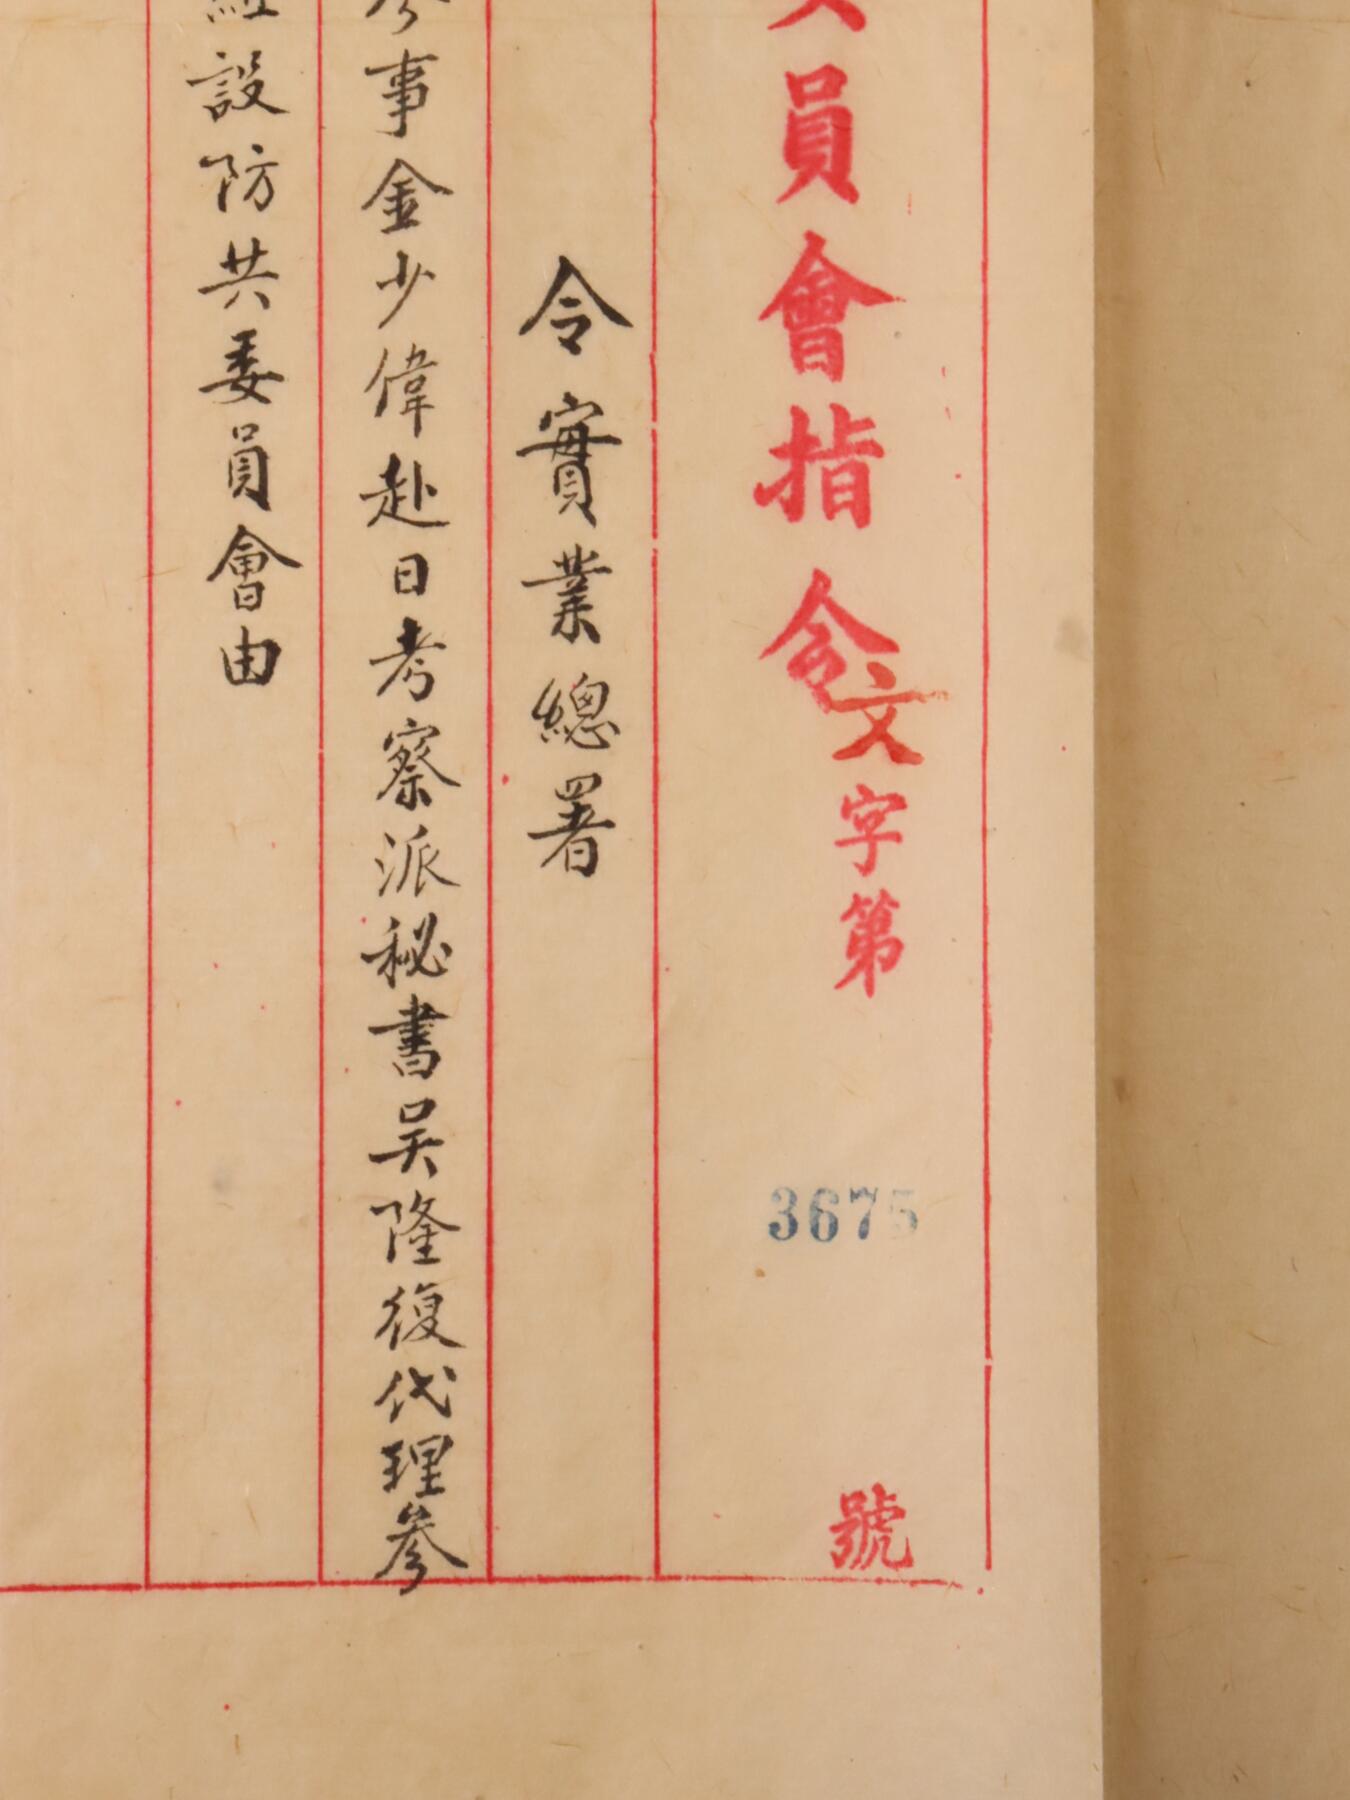 員會指令文字第3675號
令實業總署
事金少偉赴日考察派秘書吴隆復代理參
設防共委員會由